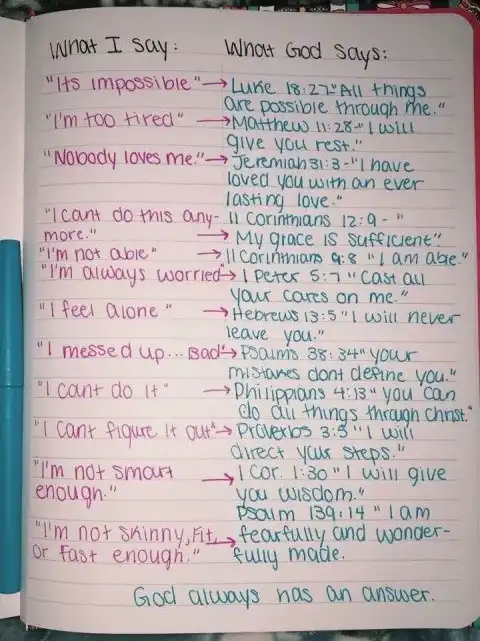 What I say: What God says:
"Its impossible" → Luke 18:27 "All things
are possible through me."
"I'm too tired" → Matthew 11:28 - "I will
give you rest."
"Nobody loves me." → Jeremiah 31:3 - "I have
loved you with an ever
lasting love."
"I cant do this any- 11 Corinthians 12:9 - "
more." → My grace is sufficient".
"I'm not able" → 11 Corinthians 9:8 "I am able."
"I'm always worried" → 1 Peter 5:7 "Cast all
your cares on me."
"I feel alone" → Hebrews 13:5 "I will never
leave you."
"I messed up... Bad" → Psalms 38:34 "your
mistakes dont define you."
"I cant do it" → Philippians 4:13 "you can
do all things through Christ."
"I cant figure it out" → Proverbs 3:5 "I will
direct your steps."
"I'm not smart → 1 Cor. 1:30 "I will give
enough." you wisdom."
Psalm 139:14 "I am
"I'm not skinny, Fit, → fearfully and wonder-
or Fast enough." fully made.
God always has an answer.